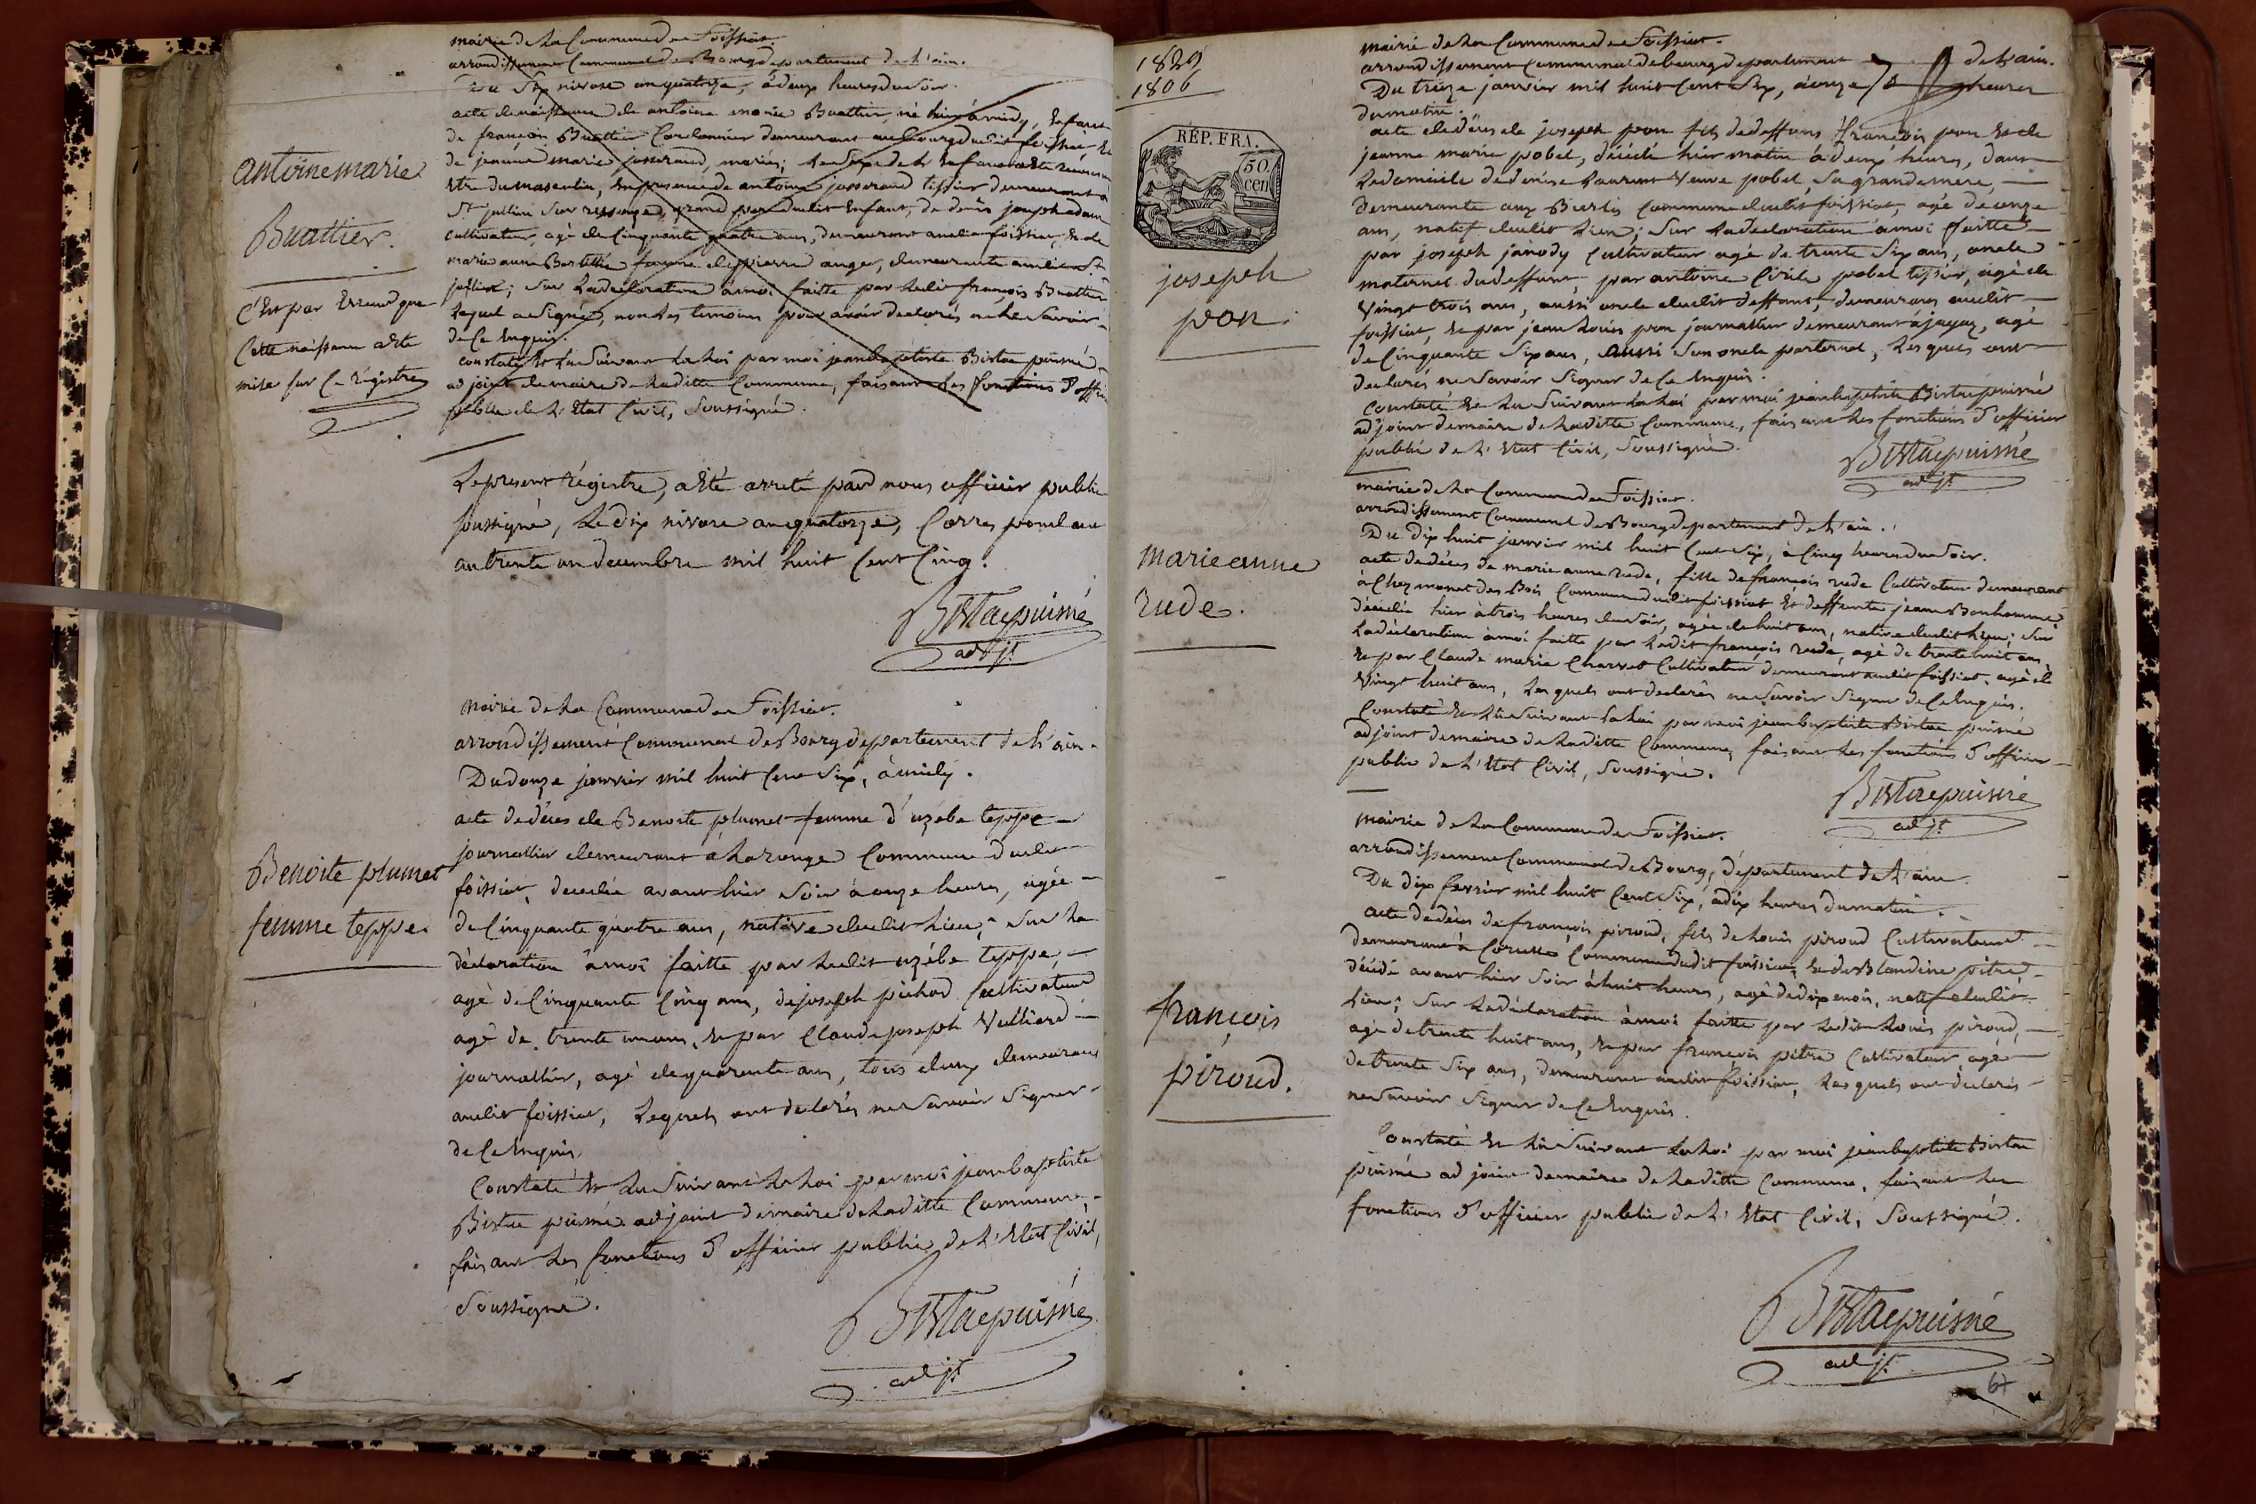 mairie de la Commune de Foissiat.
arrondissement Communal de Bourg departement de l'ain.
Du Six nivose an quatorze, à deux heures du Soir.
acte de naissance de antoine marie Buattier, né hier à midy, Enfant
de françois Buattier Cordonnier demeurant au bourg dudit foissiat et
de jeanne marie josserand, mariés; le Sexe de l'Enfant a été reconnu
etre du masculin, En presence de antoine josserand tissier demeurant à
St jullien sur ressouze, grand pere dudit Enfant, de denis joseph adam
cultivateur, agé de Cinquante quatre ans, demeurant audit foissiat, et de
marie anne Bertillié femme de pierre auger, demeurante audit St
jullien; Sur la declaration à moi faitte par ledit françois Buattier
lequel a Signé, non les temoins pour avoir declarés ne le Savoir
de Ce Enquis.
Constaté et lu Suivant la loi par moi jean baptiste Bistae puisné
adjoint de maire de laditte Commune, faisant les fonctions d'officier
public de l'Etat Civil, Soussigné.
antoine marie
Buattier.
C'Est par Erreur que
Cette naissance a été
mise sur Ce Régistre
Le present régistre, a été arreté par nous officier public
soussigné, le dix nivose an quatorze, Correspondant
au trente un decembre mil huit Cent Cinq.
Bistae puisné
adjt
mairie de la Commune de Foissiat.
arrondissement Communal de Bourg departement de l'ain.
Du douze janvier mil huit Cent Six, à midy.
acte de déces de Benoite plumet femme d'uzebe teppe
journallier demeurant à la ronge Commune dudit
foissiat, decedée avant hier Soir à onze heures, agée
de Cinquante quatre ans, native dudit lieu; Sur la
declaration à moi faitte par ledit uzébe teppe,
agé de Cinquante Cinq ans, de joseph pichod Cultivateur
agé de trente un ans, et par Claude joseph Vulliard
journallier, agé de quarente ans, tous deux demeurans
audit foissiat, Lequels ont declarés ne Savoir Signer
de Ce Enquis.
Constaté et lu Suivant la loi par moi jean baptiste
Bistae puisné adjoint de maire de laditte Commune,
faisant les fonctions d'officier public de l'Etat Civil,
Soussigné.
Benoite plumet
femme teppe.
Bistae puisné
adjt
1829
1806
RÉP. FRA.
50
cen
mairie de la Commune de Foissiat.
arrondissement Communal de bourg departement de l'ain.
Du treize janvier mil huit Cent Six, à onze heures
du matin.
acte de déces de joseph pon fils de deffunt françois pon et de
jeanne marie pobel, décédé hier matin à deux heures, dans
le domicile de denise laurent Veuve pobel, sa grande mere,
demeurante aux Burtis Commune dudit foissiat, agé de onze
ans, natif dudit lieu; Sur la declaration à moi faitte
par joseph janody Cultivateur agé de trente Six ans, oncle
maternel du deffunt, par antoine Civile pobel tissier, agé de
Vingt trois ans, aussi oncle dudit deffunt, demeurans audit
foissiat, et par jean louis pon journallier demeurant à jayaz, agé
de Cinquante Six ans, aussi Son oncle paternel, lesquels ont
declarés ne Savoir Signer de Ce Enquis.
Constaté et lu Suivant la loi par moi jean baptiste Bistae puisné
adjoint de maire de laditte Commune, faisant les fonctions d'officier
public de l'Etat Civil, Soussigné.
joseph
pon.
Bistae puisné
adjt
mairie de la Commune de Foissiat.
arrondissement Communal de Bourg departement de l'ain.
Du dix huit janvier mil huit Cent Six, à Cinq heures du Soir.
acte de déces de marie anne rude, fille de françois rude Cultivateur demeurant
à Chez monet des Bois Commune dudit foissiat et deffunte jeanne Bonhomme,
décedée hier à trois heures du Soir, agée de huit ans, native dudit lieu; Sur
la déclaration à moi faitte par ledit françois rude, agé de trente huit ans,
et par Claude marie Charvet Cultivateur demeurant audit foissiat, agé de
Vingt huit ans, lesquels ont declarés ne Savoir Signer de Ce Enquis.
Constaté et lu Suivant la loi par moi jean baptiste Bistae puisné
adjoint de maire de laditte Commune, faisant les fonctions d'officier
public de l'Etat Civil, Soussigné.
marie anne
rude.
Bistae puisné
adjt
mairie de la Commune de Foissiat.
arrondissement Communal de Bourg, département de l'ain.
Du dix fevrier mil huit Cent Six, à dix heures du matin.
acte de déces de françois piroud, fils de louis piroud Cultivateur
demeurant à Corcelles Commune dudit foissiat, et de Blandine pitre,
décédé avant hier Soir à huit heures, agé de dix mois, natif dudit
lieu; Sur la déclaration à moi faitte par ledit louis piroud,
agé de trente huit ans, et par françois pitre Cultivateur, agé
de trente Six ans, demeurant audit foissiat, lesquels ont declarés
ne Savoir Signer de Ce Enquis.
Constaté et lu Suivant la loi par moi jean baptiste Bistae
puisné adjoint de maire de laditte Commune, faisant les
fonctions d'officier public de l'Etat Civil, Soussigné.
françois
piroud.
Bistae puisné
adjt
67